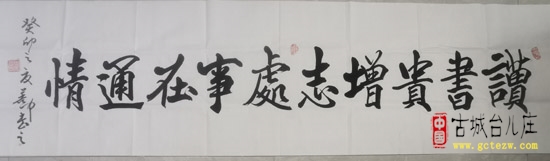 讀書貴增志處事在通情
癸卯之夏
書之
中国
古城台儿庄
www.gctezw.com